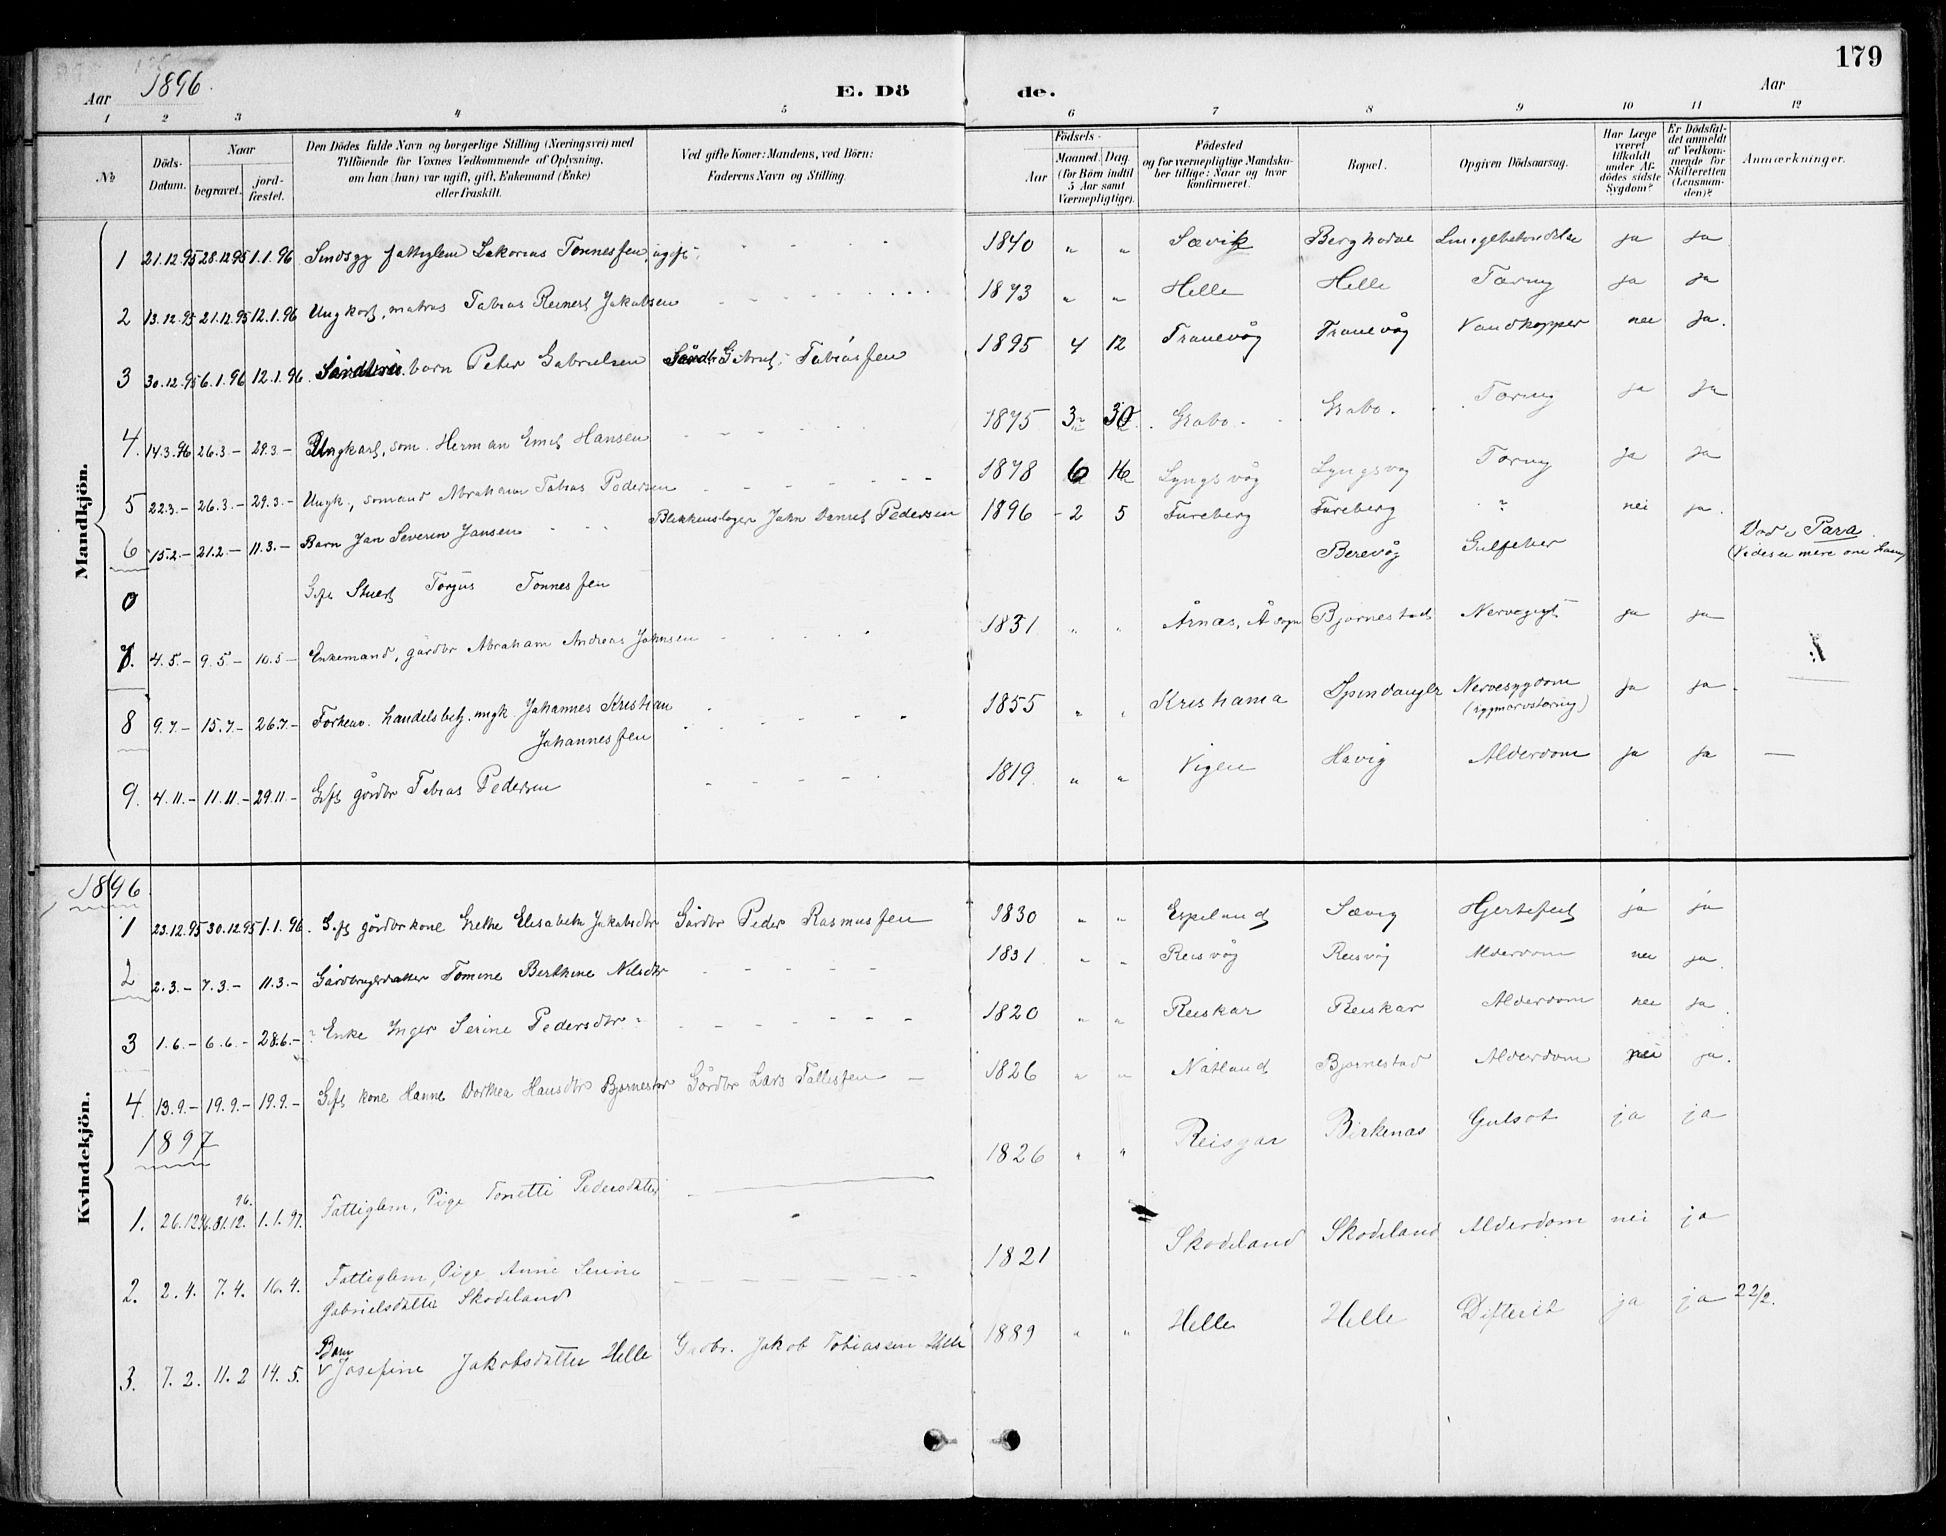 179
Aar 1896.
E. Dö de.
Aar
1 2 3 4 5 6 7 8 9 10 11 12
№ Döds-Datum. Naar begravet. jordfæstet. Den Dödes fulde Navn og borgerlige Stilling (Næringsvei) med Tilföiende for Voxnes Vedkommende af Oplysning, om han (hun) var ugift, gift, Enkemand (Enke) eller fraskilt. Ved gifte Koner: Mandens, ved Börn: Faderens Navn og Stilling. Födsels- Aar Maaned. Dag. (for Börn indtil 5 Aar samt Værnepligtige). Födested og for værnepligtige Mandskaber tillige: Naar og hvor konfirmeret. Bopæl. Opgiven Dödsaarsag. Har Læge været tilkaldt under Afdödes sidste Sygdom? Er Dödsfaldet anmeldt af Vedkommende for Skifteretten (Lensmanden)? Anmærkninger.
Mandkjön.
1 21.12.95 28.12.95 1.1.96 Sindsyg fattiglem Sakarias Tønnessen, ugift. 1840 " " Sævik Berghodve ja ja
2 13.12.95 21.12.95 12.1.96 Ungkarl, matros Tobias Reinert Jakobsen 1873 " " Helle Helle Tæring ja ja
3 30.12.95 6.1.96 12.1.96 barn Peter Gabrielsen Tobiassen 1895 4 12 Tranevåg Tranevåg Vandkopper nei ja.
4. 14.3.96 26.3– 29.3– Ungkarl, søm. Herman Emil Hansen 1875 3 30 Grabo. Grabo. Tæring ja ja
5 22.3.– 26.3.– 29.3.– Ungk., sømand Abraham Tobias Pedersen 1878 6 16 Lyngsvåg Lyngsvåg Tæring ja ja
6 15.2.– 21.2.– 11.3.– Barn Jan Severin Jansen Blikkenslager John Daniel Pedersen 1896 2 5 Fureberg Fureberg ? nei ja.
0 Gift Stuert Torjus Tønnessen Berevåg Gulfeber Død i Para.
7. 4.5.– 9.5– 10.5– Enkemand, gårdbr Abraham Andreas Johnsen 1831 " " Årnæs, Å sogn Bjørnestad Nervegigt ja ja
8 9.7.– 15.7.– 26.7.– Forhenv. handelsbetj. ungk. Johannes Kristian Johannessen 1855 " " Kristiania Spindanger Nervesygdom (rygmarvstæring) ja ja
9. 4.11.– 11.11.– 29.11.– Gift gårdbr Tobias Pedersen 1819 " " Vigen Havig Alderdom ja ja —
Kvindekjön.
1896
1 23.12.95 30.12.95 1.1.96. Gift gårdbrkone Grethe Elisabeth Jakobsdtr Gårdbr Peder Rasmussen 1830 " " Espeland Sævig Hjertefeil ja ja
2 2.3.– 7.3.– 11.3.– Gårdbrugerdatter Tomine Berthine Nilsdtr 1831 " " Reisvåg Reisvåg Alderdom nei ja.
3 1.6.– 6.6.– 28.6.– Enke Inger Serine Pedersdtr 1820 " " Reiskar Reiskar Alderdom nei ja
4. 13.9.– 19.9.– 19.9.– Gift kone Hanne Dorthea Hansdtr Bjørnestad Gårdbr Lars Tallefsen 1826 " " Nåtland Bjørnestad Alderdom nei ja.
1897
1. 26.12.96. 31.12.96. 1.1.97. Fattiglem, Pige Tonette Pedersdatter 1826 " " Reisgar Birkenas Gulsot ja ja
2. 2.4. 7.4. 16.4. Fattiglem, Pige Anne Serine Gabrielsdatter Skodeland 1821 Skodeland Skodeland Alderdom nei ja
3. 7.2. 11.2 14.5. Barn Josefine Jakobsdatter Helle Gadbr. Jakob Tobiassen Helle 1889 " " Helle Helle Difterit ja ja 22/2.